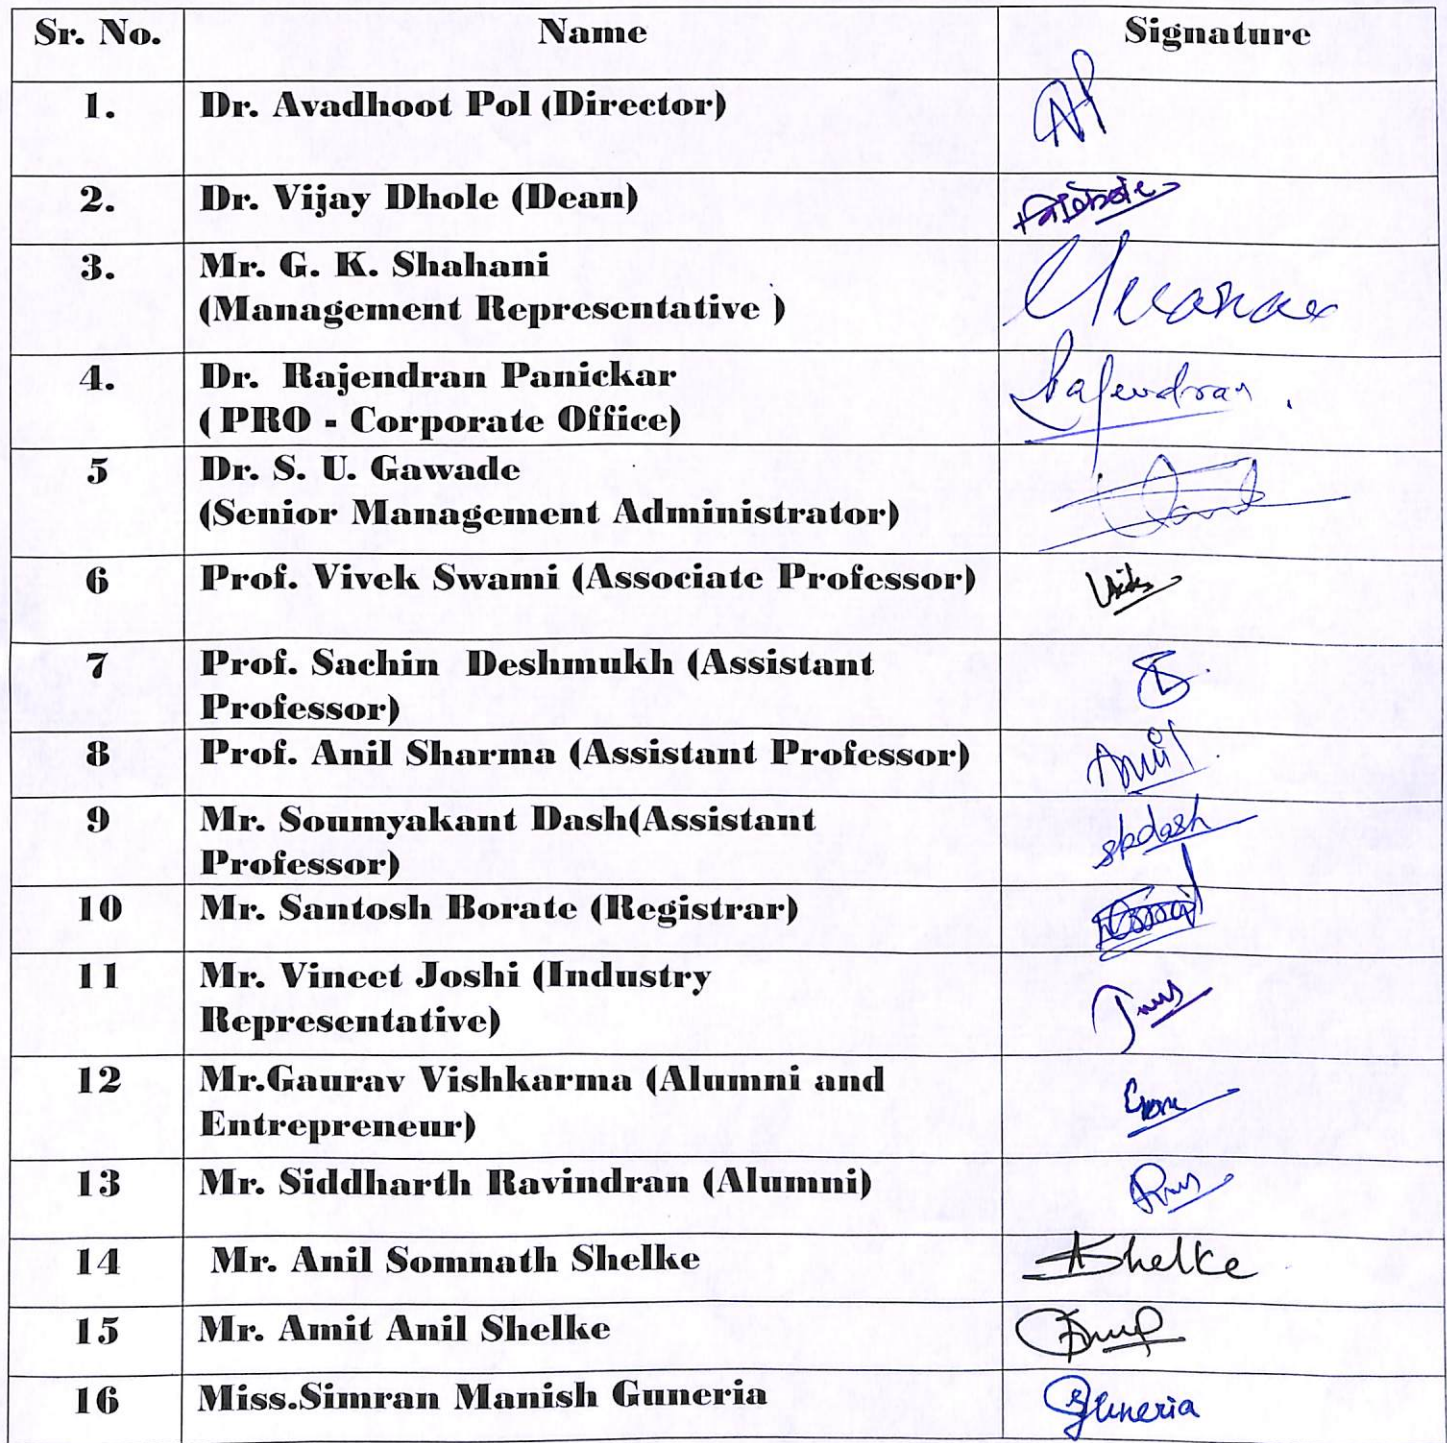 Sr. No. Name Signature
1. Dr. Avadhoot Pol (Director) AP
2. Dr. Vijay Dhole (Dean)
3. Mr. G. K. Shahani
(Management Representative )
4. Dr. Rajendran Panickar Rajendran
( PRO - Corporate Office)
5 Dr. S. U. Gawade
(Senior Management Administrator)
6 Prof. Vivek Swami (Associate Professor)
7 Prof. Sachin Deshmukh (Assistant
Professor)
8 Prof. Anil Sharma (Assistant Professor) Anil
9 Mr. Soumyakant Dash(Assistant skdash
Professor)
10 Mr. Santosh Borate (Registrar)
11 Mr. Vineet Joshi (Industry
Representative)
12 Mr.Gaurav Vishkarma (Alumni and
Entrepreneur)
13 Mr. Siddharth Ravindran (Alumni)
14 Mr. Anil Somnath Shelke AShelke
15 Mr. Amit Anil Shelke
16 Miss.Simran Manish Guneria Guneria